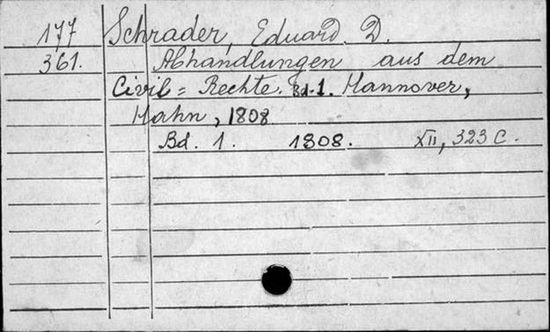 177 Schrader, Eduard. D.
361. Abhandlungen aus dem
Civil= Rechte. Bd. 1. Hannover,
Hahn, 1808
Bd. 1. 1808. XII, 323 C.